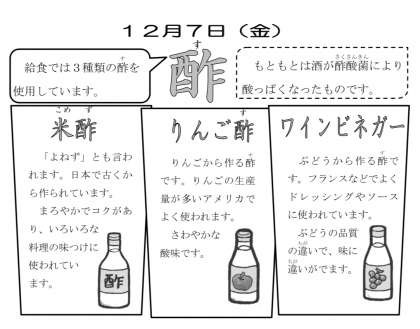 １２月７日（金）
給食では３種類の酢を
使用しています。
す
酢
もともとは酒が酢酸菌により
酸っぱくなったものです。
こめ ず
米酢
「よねず」とも言わ
れます。日本で古くか
ら作られています。
まろやかでコクがあ
り、いろいろな
料理の味つけに
使われてい
ます。
酢
す
りんご酢
りんごから作る酢
です。りんごの生産
量が多いアメリカで
よく使われます。
さわやかな
酸味です。
ワインビネガー
ぶどうから作る酢で
す。フランスなどでよく
ドレッシングやソース
に使われています。
ぶどうの品質
の違いで、味に
違いがでます。